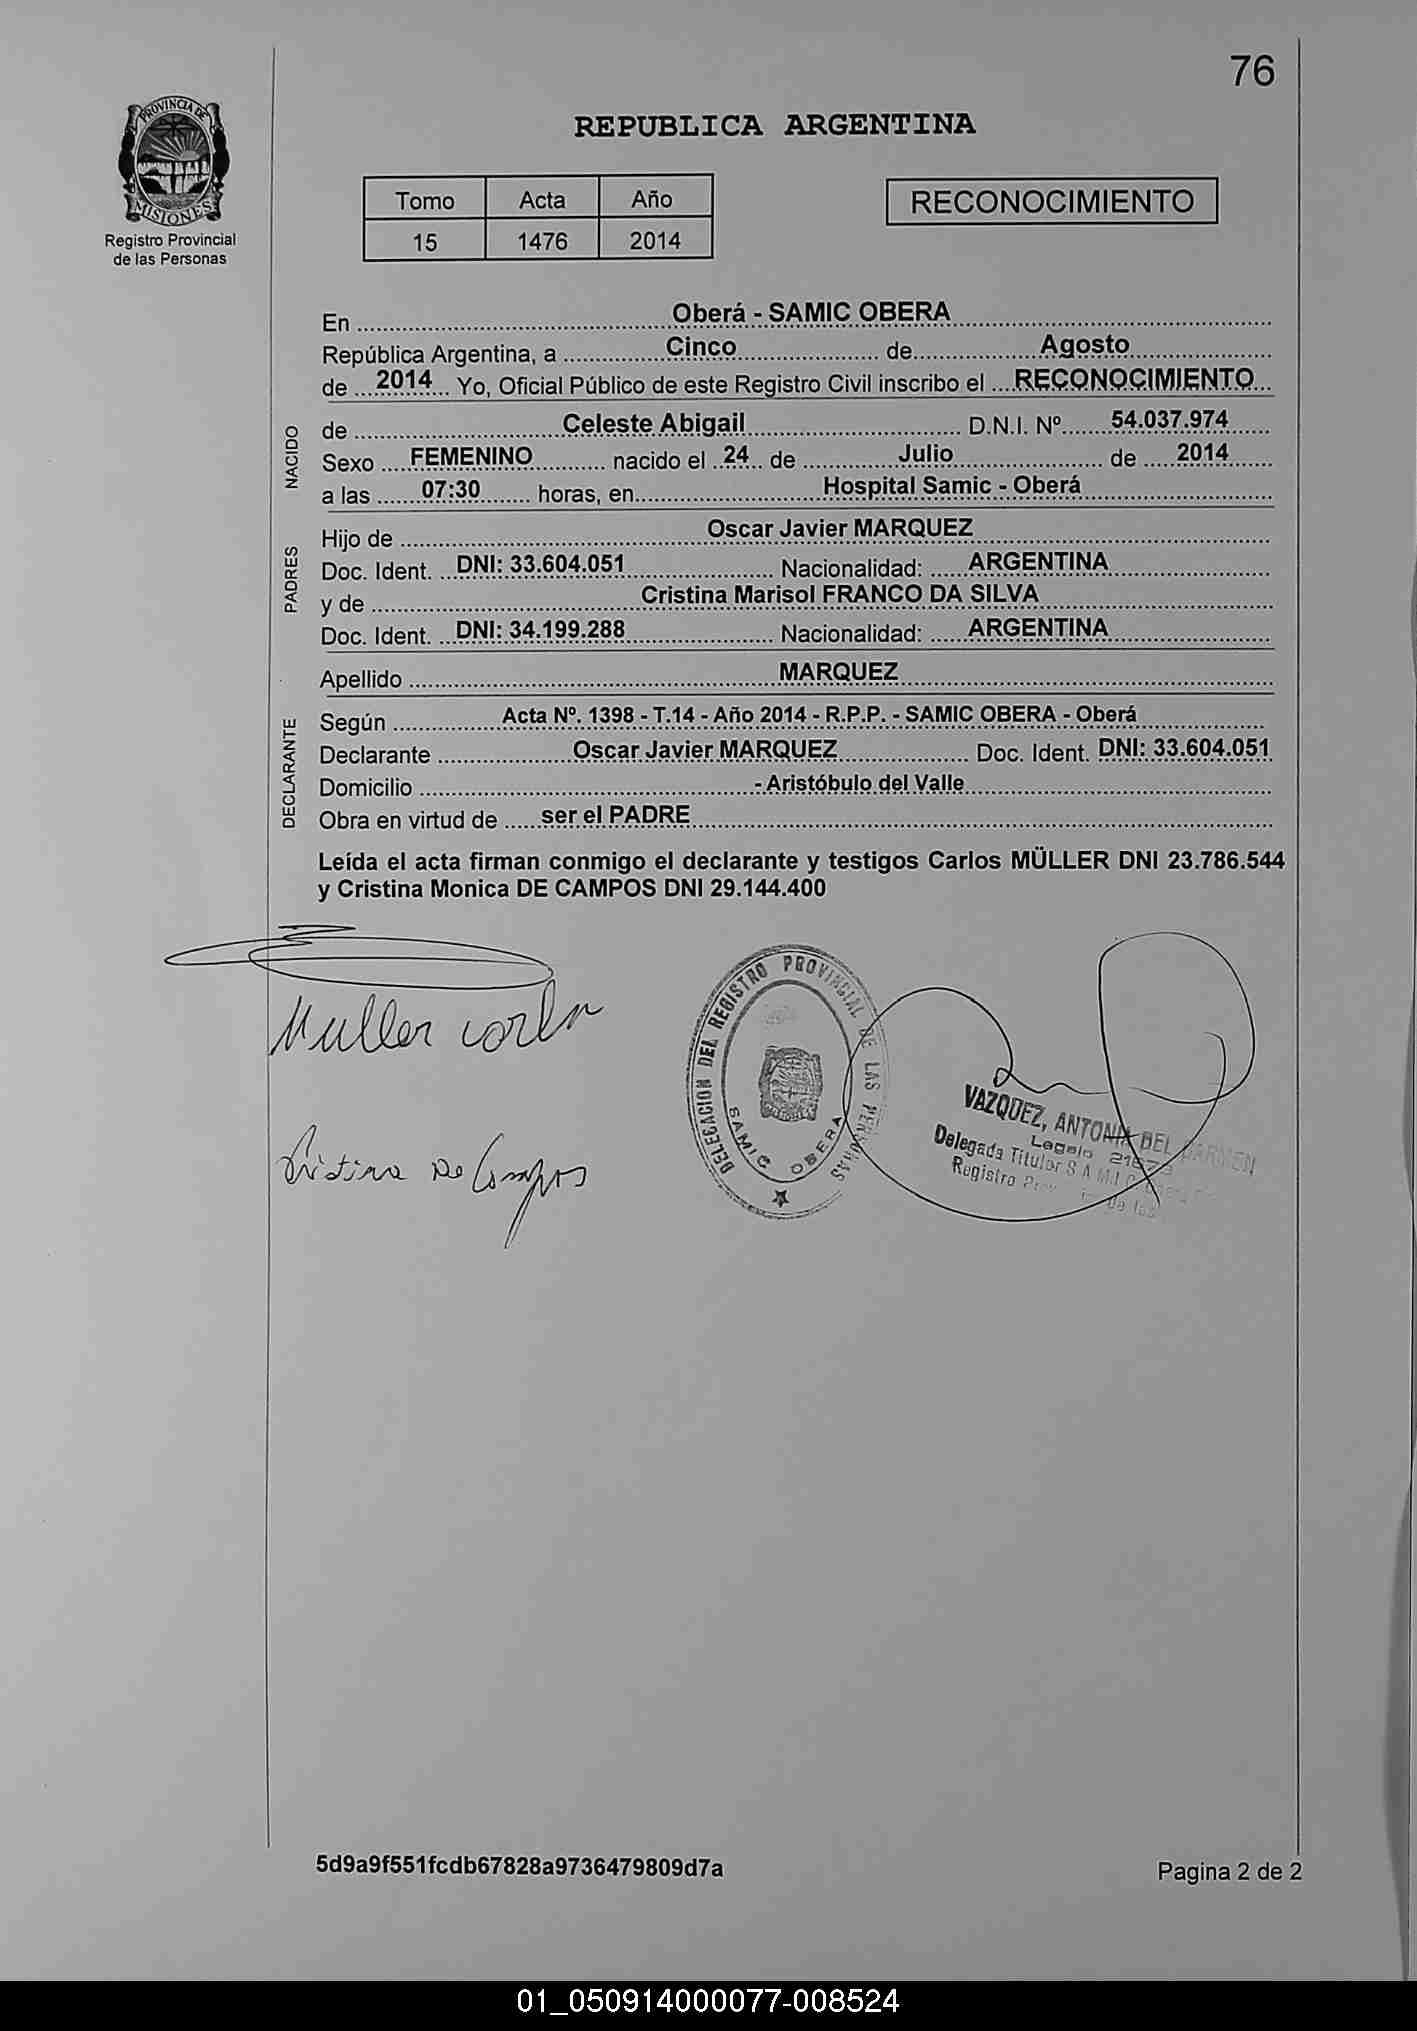 76
PROVINCIA DE
MISIONES
Registro Provincial
de las Personas
REPUBLICA ARGENTINA
Tomo Acta Año
15 1476 2014
RECONOCIMIENTO
En Oberá - SAMIC OBERA
República Argentina, a Cinco de Agosto
de 2014 Yo, Oficial Público de este Registro Civil inscribo el RECONOCIMIENTO
NACIDO
de Celeste Abigail D.N.I. Nº 54.037.974
Sexo FEMENINO nacido el 24 de Julio de 2014
a las 07:30 horas, en Hospital Samic - Oberá
PADRES
Hijo de Oscar Javier MARQUEZ
Doc. Ident. DNI: 33.604.051 Nacionalidad: ARGENTINA
y de Cristina Marisol FRANCO DA SILVA
Doc. Ident. DNI: 34.199.288 Nacionalidad: ARGENTINA
Apellido MARQUEZ
DECLARANTE
Según Acta Nº. 1398 - T.14 - Año 2014 - R.P.P. - SAMIC OBERA - Oberá
Declarante Oscar Javier MARQUEZ Doc. Ident. DNI: 33.604.051
Domicilio - Aristóbulo del Valle
Obra en virtud de ser el PADRE
Leída el acta firman conmigo el declarante y testigos Carlos MÜLLER DNI 23.786.544
y Cristina Monica DE CAMPOS DNI 29.144.400
Muller
Cristina De Campos
DELEGACION DEL REGISTRO PROVINCIAL DE LAS PERSONAS
SAMIC OBERA
VAZQUEZ, ANTONIA DEL CARMEN
Legajo
Delegada Titular S.A.M.I.C.
Registro
5d9a9f551fcdb67828a9736479809d7a
Pagina 2 de 2
01_050914000077-008524